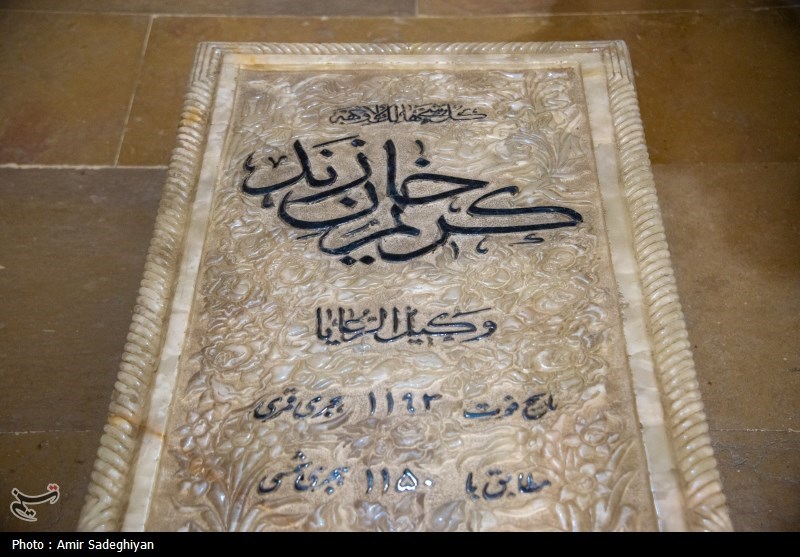 کل شیء هالک الا وجهه
کریم خان زند
وکیل الرعایا
تاریخ فوت ۱۱۹۳ هجری قمری
مطابق با ۱۱۵۰ هجری شمسی
تسنیم
Photo : Amir Sadeghiyan